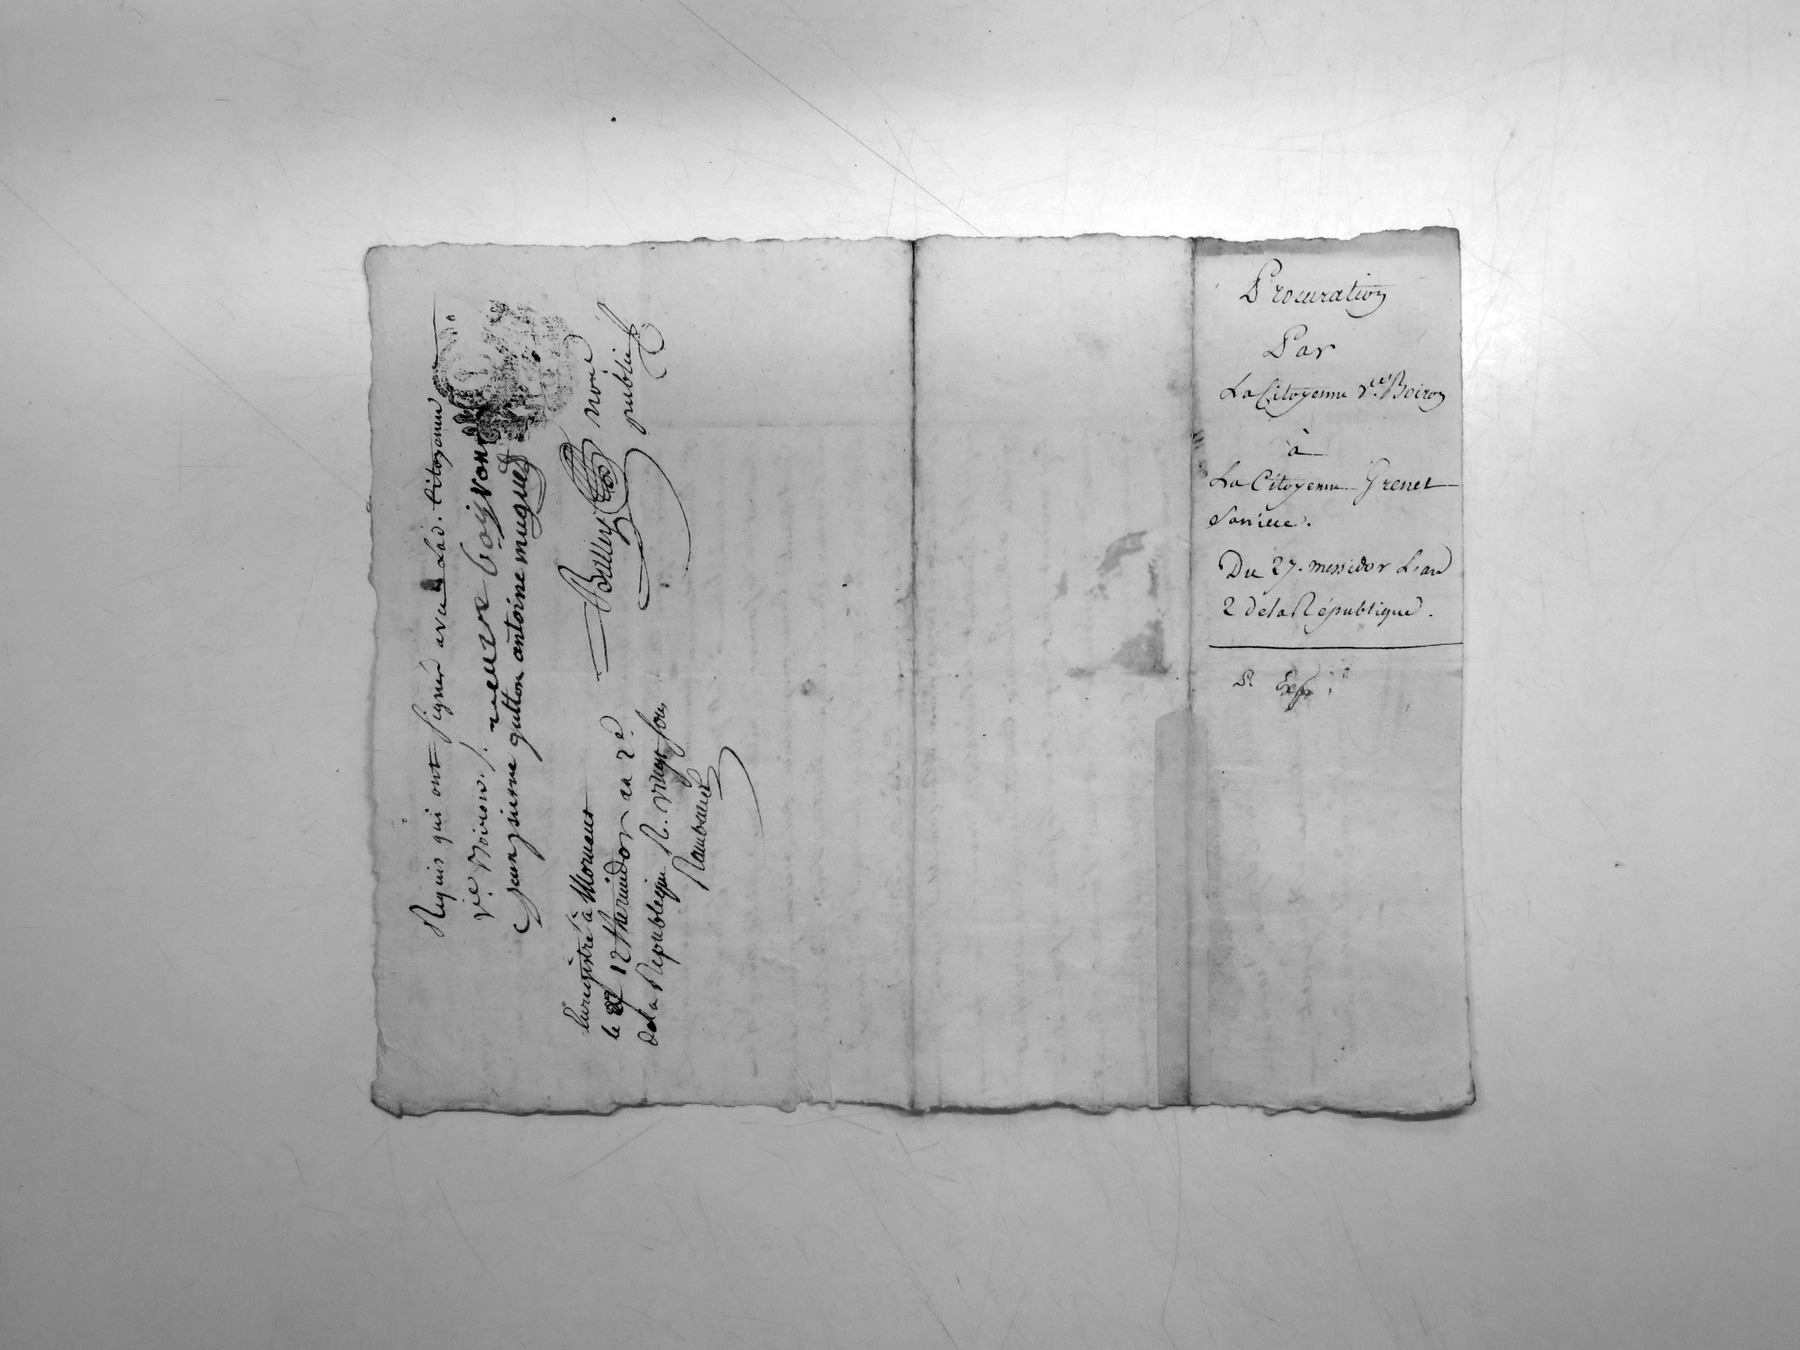 Procuration
Par
La Citoyenne v.e Boiron
à
La Citoyenne Grenet
Sa nièce.
Du 27. messidor L'an
2 de la République.
R Exp
Requis qui ont signés avec lad. Citoyenne
v.e Boiron /. veuve boiron
jean pierre gutton antoine muguet
notre
public
Enregistré à Mornant
le 12 thermidor an 2e
de la République R. vingt sous